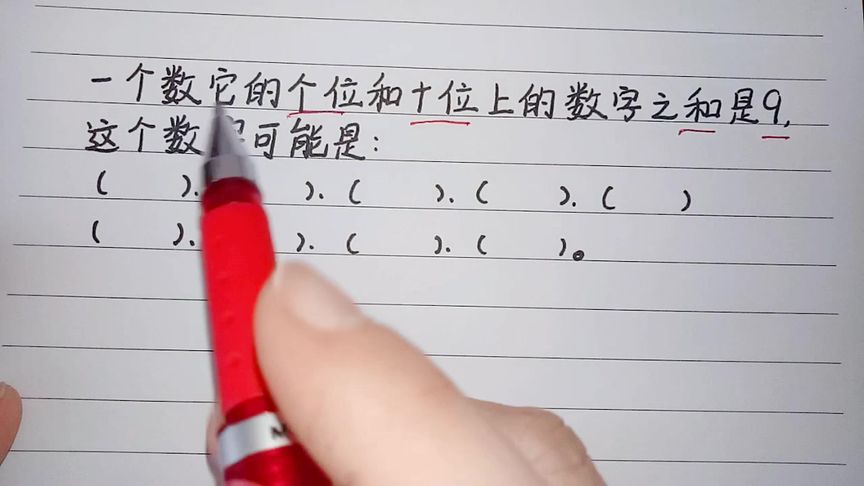 一个数它的个位和十位上的数字之和是9,
这个数 可能是:
( ). ). ( ). ( ). ( )
( ). ). ( ). ( )。